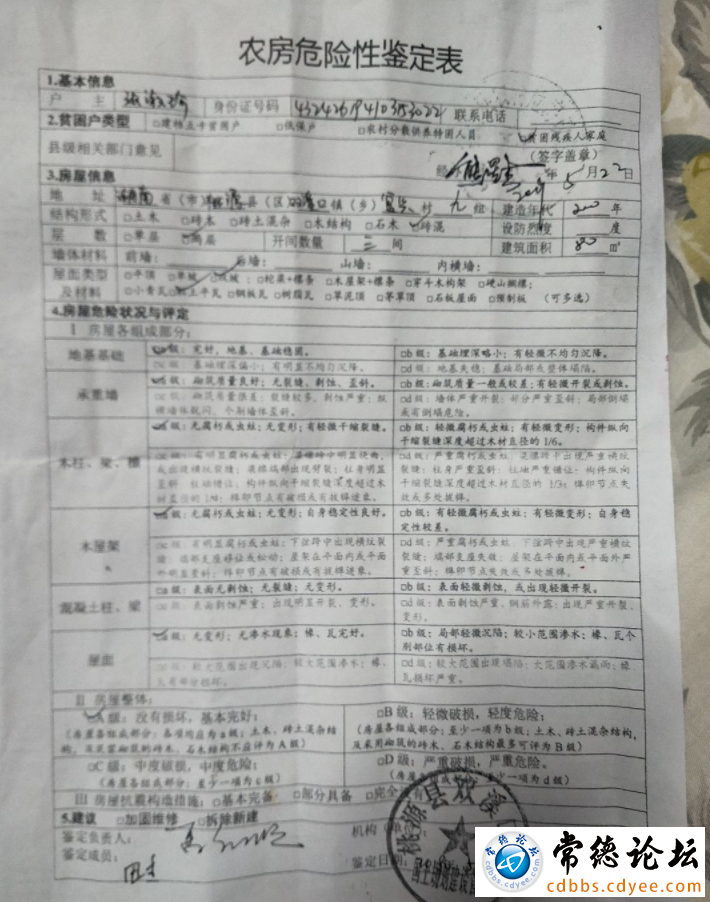 农房危险性鉴定表
1.基本信息
户 主 身份证号码 联系电话
2.贫困户类型 □建档立卡贫困户 □低保户 □农村分散供养特困人员 贫困残疾人家庭
县级相关部门意见
(签字盖章)
年 5 月 22 日
3.房屋信息
地 址 省(市) 县(区) 镇(乡) 村 九 组 建造年代 年
结构形式 □土木 □砖木 □砖土混杂 □木结构 □石木 砖混 设防烈度 度
层 数 □单层 高层 开间数量 三 间 建筑面积 80 ㎡
墙体材料 前墙: 后墙: 山墙: 内横墙:
屋面类型 □平顶 □单坡 双坡: □砼菜+檩条 □木屋架+檩条 □穿斗木构架 □硬山搁檩;
及材料 □小青瓦 □钢板瓦 □树脂瓦 □草泥顶 □茅草顶 □石板屋面 □预制板 (可多选)
4.房屋危险状况与评定
I 房屋各组成部分:
地基基础 级:完好,地基、基础稳固。 □b级:基础埋深略小;有轻微不均匀沉降。
□c级:基础埋深偏小;有明显不均匀沉降。 □d级:地基失稳;基础局部或整体塌陷。
承重墙 级:砌筑质量良好;无裂缝、剥蚀、歪斜。 □b级:砌筑质量一般或较差;有轻微开裂或剥蚀。
□c级:砌筑质量很差;裂缝较多,剥蚀严重;纵横墙体脱闪,个别墙体歪斜。 □d级:墙体严重开裂;部分严重歪斜;局部倒塌或有倒塌危险。
木柱、梁、檩 级:无腐朽或虫蛀;无变形;有轻微干缩裂缝。 □b级:轻微腐朽或虫蛀;有轻微变形;构件纵向干缩裂缝深度超过木材直径的1/6。
□c级:有明显腐朽或虫蛀;梁檩跨中明显挠曲,或出现横纹裂缝;梁檩端部出现劈裂;柱身明显歪斜;柱础错位;构件纵向干缩裂缝深度超过木材直径的1/4;榫卯节点有破损或有拔榫迹象。 □d级:严重腐朽或虫蛀;梁檩跨中出现严重横纹裂缝;柱身严重歪斜;柱础严重错位;构件纵向干缩裂缝深度超过木材直径的1/3;榫卯节点失效或多处拔榫。
木屋架 级:无腐朽或虫蛀;无变形;自身稳定性良好。 □b级:有轻微腐朽或虫蛀;有轻微变形;自身稳定性较差。
□c级:有明显腐朽或虫蛀;下弦跨中出现横纹裂缝;端部支座移位或松动;屋架在平面内或平面外明显歪斜;榫卯节点有破损或有拔榫迹象。 □d级:严重腐朽或虫蛀;下弦跨中出现严重横纹裂缝;端部支座失效;屋架在平面内或平面外严重歪斜;榫卯节点失效或多处拔榫。
混凝土柱、梁 □a级:表面无剥蚀;无裂缝;无变形。 □b级:表面轻微剥蚀,或出现轻微开裂。
□c级:表面剥蚀严重;出现明显开裂、变形。 □d级:表面剥蚀严重,钢筋外露;出现严重开裂、变形。
屋面 级:无变形;无渗水现象;椽、瓦完好。 □b级:局部轻微沉陷;较小范围渗水;椽、瓦个别部位有损坏。
□c级:较大范围出现沉陷;较大范围渗水;椽、瓦有部分损坏。 □d级:较大范围出现塌陷;大范围渗水漏雨;椽、瓦损坏严重。
II 房屋整体:
A级:没有损坏,基本完好; □B级:轻微破损,轻度危险;
(房屋各组成部分:各项均应为a级;土木、砖土混杂结构,及采用砌筑的砖木、石木结构不应评为A级) (房屋各组成部分:至少一项为b级;土木、砖土混杂结构,及采用砌筑的砖木、石木结构最多可评为B级)
□C级:中度破损,中度危险; □D级:严重破损,严重危险。
(房屋各组成部分:至少一项为c级) (房屋各组成部分:至少一项为d级)
III 房屋抗震构造措施:□基本完备 □部分具备 □完全
5.建议 □加固维修 □拆除新建
鉴定负责人: 机构(单
鉴定成员: 鉴定日期:
桃源县双溪
国土规划建设
常德论坛
cdbbs.cdyee.com